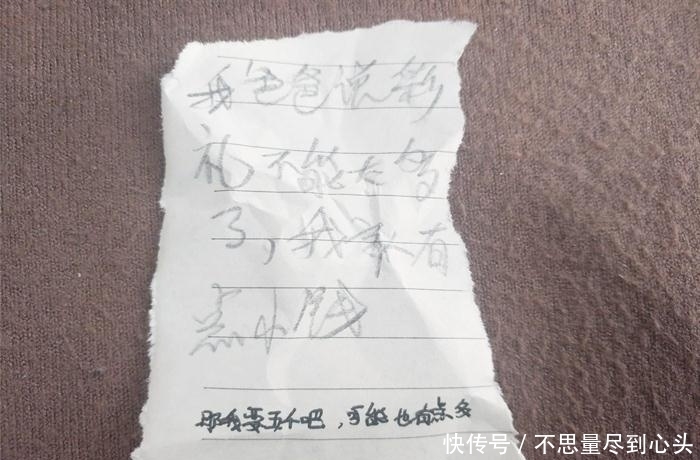 我爸爸说彩
礼不能太多
了，我家有
点小钱
那我要五个吧，可能也有点多
快传号 / 不思量尽到心头